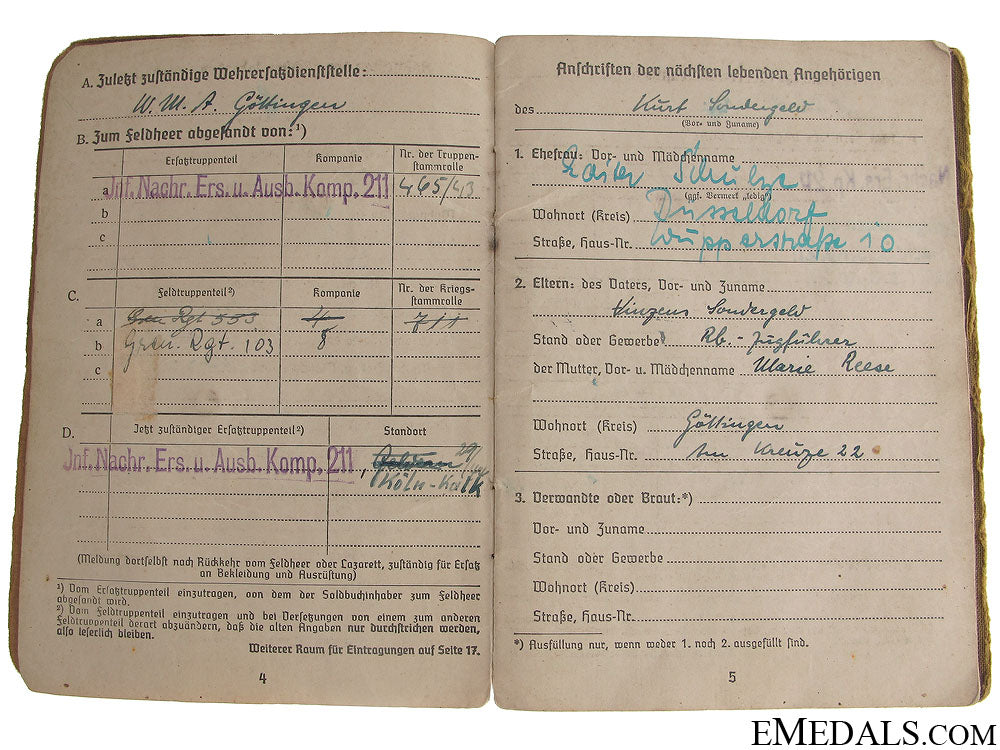 A. Zuletzt zuständige Wehrersatzdienststelle:
W. M. A. Göttingen
B. Zum Feldheer abgesandt von:¹)
Ersatztruppenteil Kompanie Nr. der Truppen-
stammrolle
a Inf. Nachr. Ers. u. Ausb. Komp. 211 465/43
b
c
C. Feldtruppenteil²) Kompanie Nr. der Kriegs-
stammrolle
a Gren. Rgt. 553 4 711
b Gren. Rgt. 103 8
c
D. Jetzt zuständiger Ersatztruppenteil²) Standort
Inf. Nachr. Ers. u. Ausb. Komp. 211
Köln-Kalk
(Meldung dortselbst nach Rückkehr vom Feldheer oder Lazarett, zuständig für Ersatz
an Bekleidung und Ausrüstung)
¹) Vom Ersatztruppenteil einzutragen, von dem der Soldbuchinhaber zum Feldheer
abgesandt wird.
²) Vom Feldtruppenteil einzutragen und bei Versetzungen von einem zum anderen
Feldtruppenteil derart abzuändern, daß die alten Angaben nur durchstrichen werden,
also leserlich bleiben.
Weiterer Raum für Eintragungen auf Seite 17.
4
Anschriften der nächsten lebenden Angehörigen
des Kurt Sondergeld
(Vor- und Zuname)
1. Ehefrau: Vor- und Mädchenname
Schulze
(ggf. Vermerk „ledig“)
Wohnort (Kreis) Düsseldorf
Straße, Haus-Nr. Wupperstraße 10
2. Eltern: des Vaters, Vor- und Zuname
Vinzens Sondergeld
Stand oder Gewerbe Rb.-Zugführer
der Mutter, Vor- u. Mädchenname Marie Reese
Wohnort (Kreis) Göttingen
Straße, Haus-Nr. Am Kreuze 22
3. Verwandte oder Braut:*)
Vor- und Zuname
Stand oder Gewerbe
Wohnort (Kreis)
Straße, Haus-Nr.
*) Ausfüllung nur, wenn weder 1. noch 2. ausgefüllt sind.
5
EMEDALS.COM